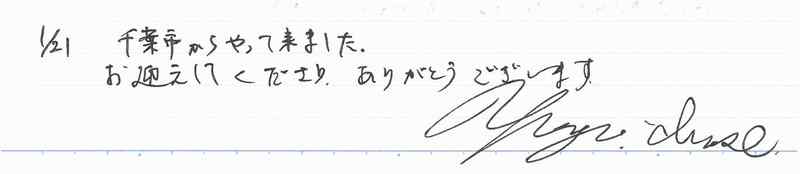 1/21 千葉市からやって来ました.
お迎えしてくださり、ありがとうございます